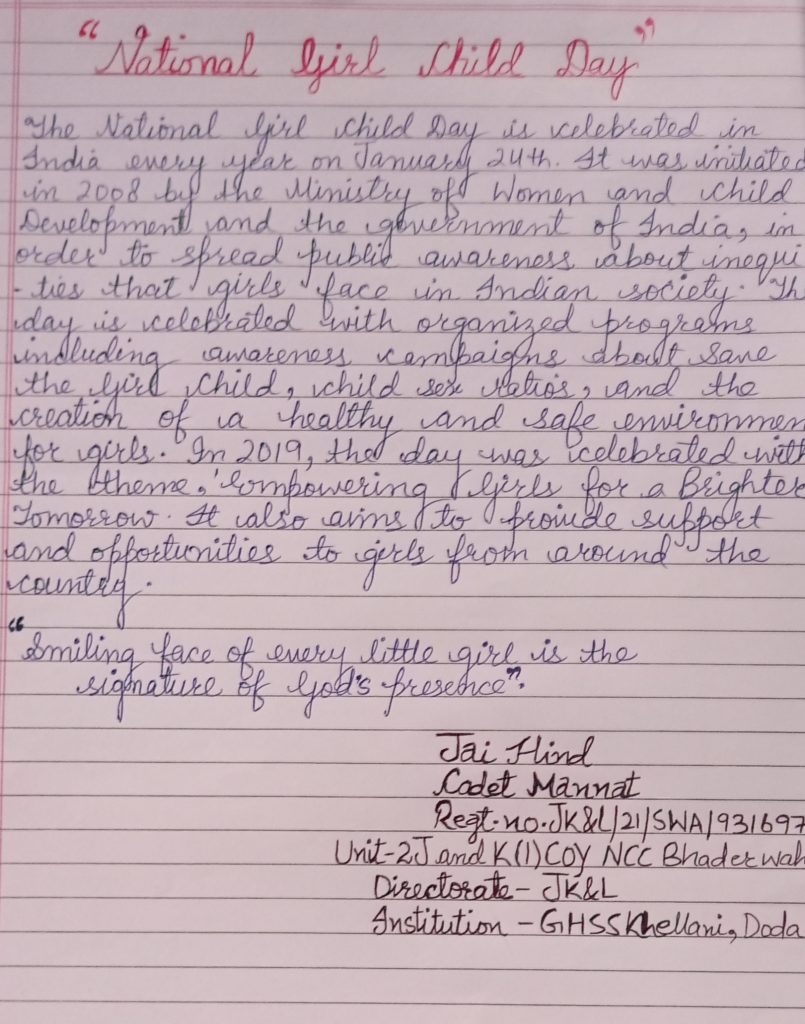 "National Girl Child Day"
The National Girl Child Day is celebrated in
India every year on January 24th. It was initiated
in 2008 by the Ministry of Women and Child
Development and the government of India, in
order to spread public awareness about inequi
-ties that girls face in Indian society. Th
day is celebrated with organized programs
including awareness campaigns about save
the Girl Child, child sex ratios, and the
creation of a healthy and safe environmen
for girls. In 2019, the day was celebrated with
the theme, 'Empowering Girls for a Brighter
Tomorrow. It also aims to proivde support
and opportunities to girls from around the
country.
"Smiling face of every little girl is the
signature of God's presence".
Jai Hind
Cadet Mannat
Regt.no.JK&L/21/SWA/931697
Unit-2J and K(1)COY NCC Bhaderwah
Directorate- JK&L
Institution - GHSS Khellani, Doda